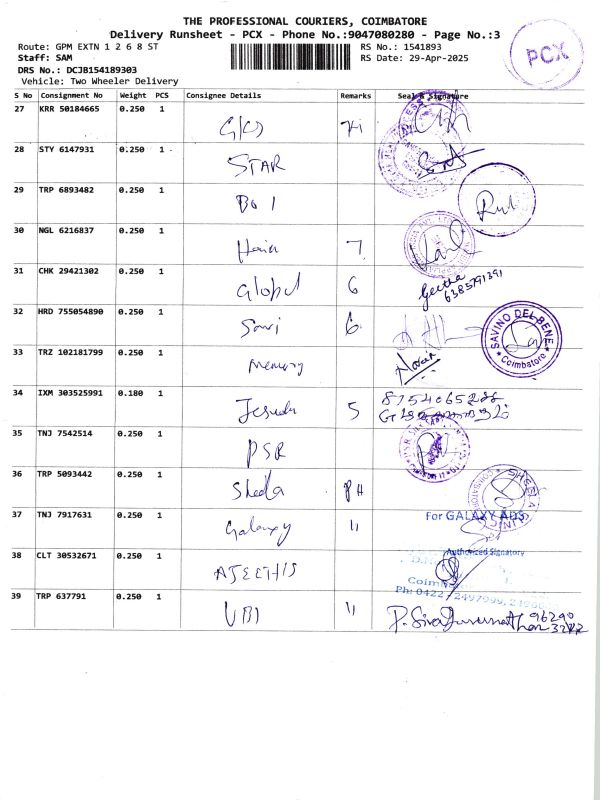 THE PROFESSIONAL COURIERS, COIMBATORE
Delivery Runsheet - PCX - Phone No.:9047080280 - Page No.:3
Route: GPM EXTN 1 2 6 8 ST
RS No.: 1541893
Staff: SAM
RS Date: 29-Apr-2025
DRS No.: DCJB154189303
Vehicle: Two Wheeler Delivery
PCX
S No Consignment No Weight PCS Consignee Details Remarks Seal & Signature
27 KRR 50184665 0.250 1
28 STY 6147931 0.250 1 STAR
29 TRP 6893482 0.250 1
30 NGL 6216837 0.250 1 7
31 CHK 29421302 0.250 1 Glopel 6 Geetha
6385791391
32 HRD 755054890 0.250 1 Savi 6 SAVINO DEL BENE * Coimbatore *
33 TRZ 102181799 0.250 1 memory
34 IXM 303525991 0.180 1 5
35 TNJ 7542514 0.250 1 PSR
36 TRP 5093442 0.250 1 Sheela PH
37 TNJ 7917631 0.250 1 Galaxy 11 For GALAXY ADS
Authorized Signatory
38 CLT 30532671 0.250 1
39 TRP 637791 0.250 1 UBI 11